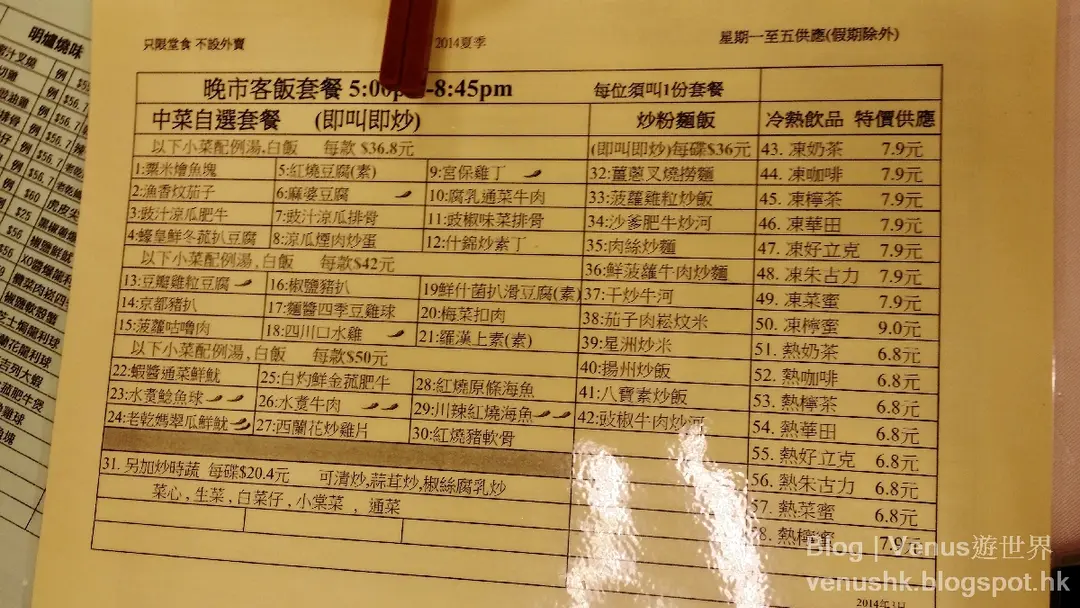 明爐燒味
只限堂食 不設外賣
2014夏季
星期一至五供應(假期除外)
晚市客飯套餐 5:00pm-8:45pm
每位須叫1份套餐
中菜自選套餐 (即叫即炒)
炒粉麵飯
冷熱飲品 特價供應
以下小菜配例湯,白飯 每款 $36.8元
1:粟米燴魚塊 5:紅燒豆腐(素) 9:宮保雞丁
2:漁香炆茄子 6:麻婆豆腐 10:腐乳通菜牛肉
3:豉汁涼瓜肥牛 7:豉汁涼瓜排骨 11:豉椒味菜排骨
4:蠔皇鮮冬菰扒豆腐 8:涼瓜煙肉炒蛋 12:什錦炒素丁
以下小菜配例湯,白飯 每款$42元
13:豆瓣雞粒豆腐 16:椒鹽豬扒 19鮮什菌扒滑豆腐(素)
14:京都豬扒 17:麵醬四季豆雞球 20:梅菜扣肉
15:菠蘿咕嚕肉 18:四川口水雞 21:羅漢上素(素)
以下小菜配例湯,白飯 每款$50元
22:蝦醬通菜鮮魷 25:白灼鮮金菰肥牛 28:紅燒原條海魚
23:水煑鯰魚球 26:水煑牛肉 29:川辣紅燒海魚
24:老乾媽翠瓜鮮魷 27:西蘭花炒雞片 30:紅燒豬軟骨
31. 另加炒時蔬 每碟$20.4元 可清炒,蒜茸炒,椒絲腐乳炒
菜心,生菜,白菜仔,小棠菜,通菜
(即叫即炒)每碟$36元
32:薑蔥叉燒撈麵
33:菠蘿雞粒炒飯
34:沙爹肥牛炒河
35:肉絲炒麵
36:鮮菠蘿牛肉炒麵
37:干炒牛河
38:茄子肉崧炆米
39:星洲炒米
40:揚州炒飯
41:八寶素炒飯
42:豉椒牛肉炒河
43. 凍奶茶 7.9元
44. 凍咖啡 7.9元
45. 凍檸茶 7.9元
46. 凍華田 7.9元
47. 凍好立克 7.9元
48. 凍朱古力 7.9元
49. 凍菜蜜 7.9元
50. 凍檸蜜 9.0元
51. 熱奶茶 6.8元
52. 熱咖啡 6.8元
53. 熱檸茶 6.8元
54. 熱華田 6.8元
55. 熱好立克 6.8元
56. 熱朱古力 6.8元
57. 熱菜蜜 6.8元
58. 熱檸蜜 7.9元
Blog | Venus遊世界
venushk.blogspot.hk